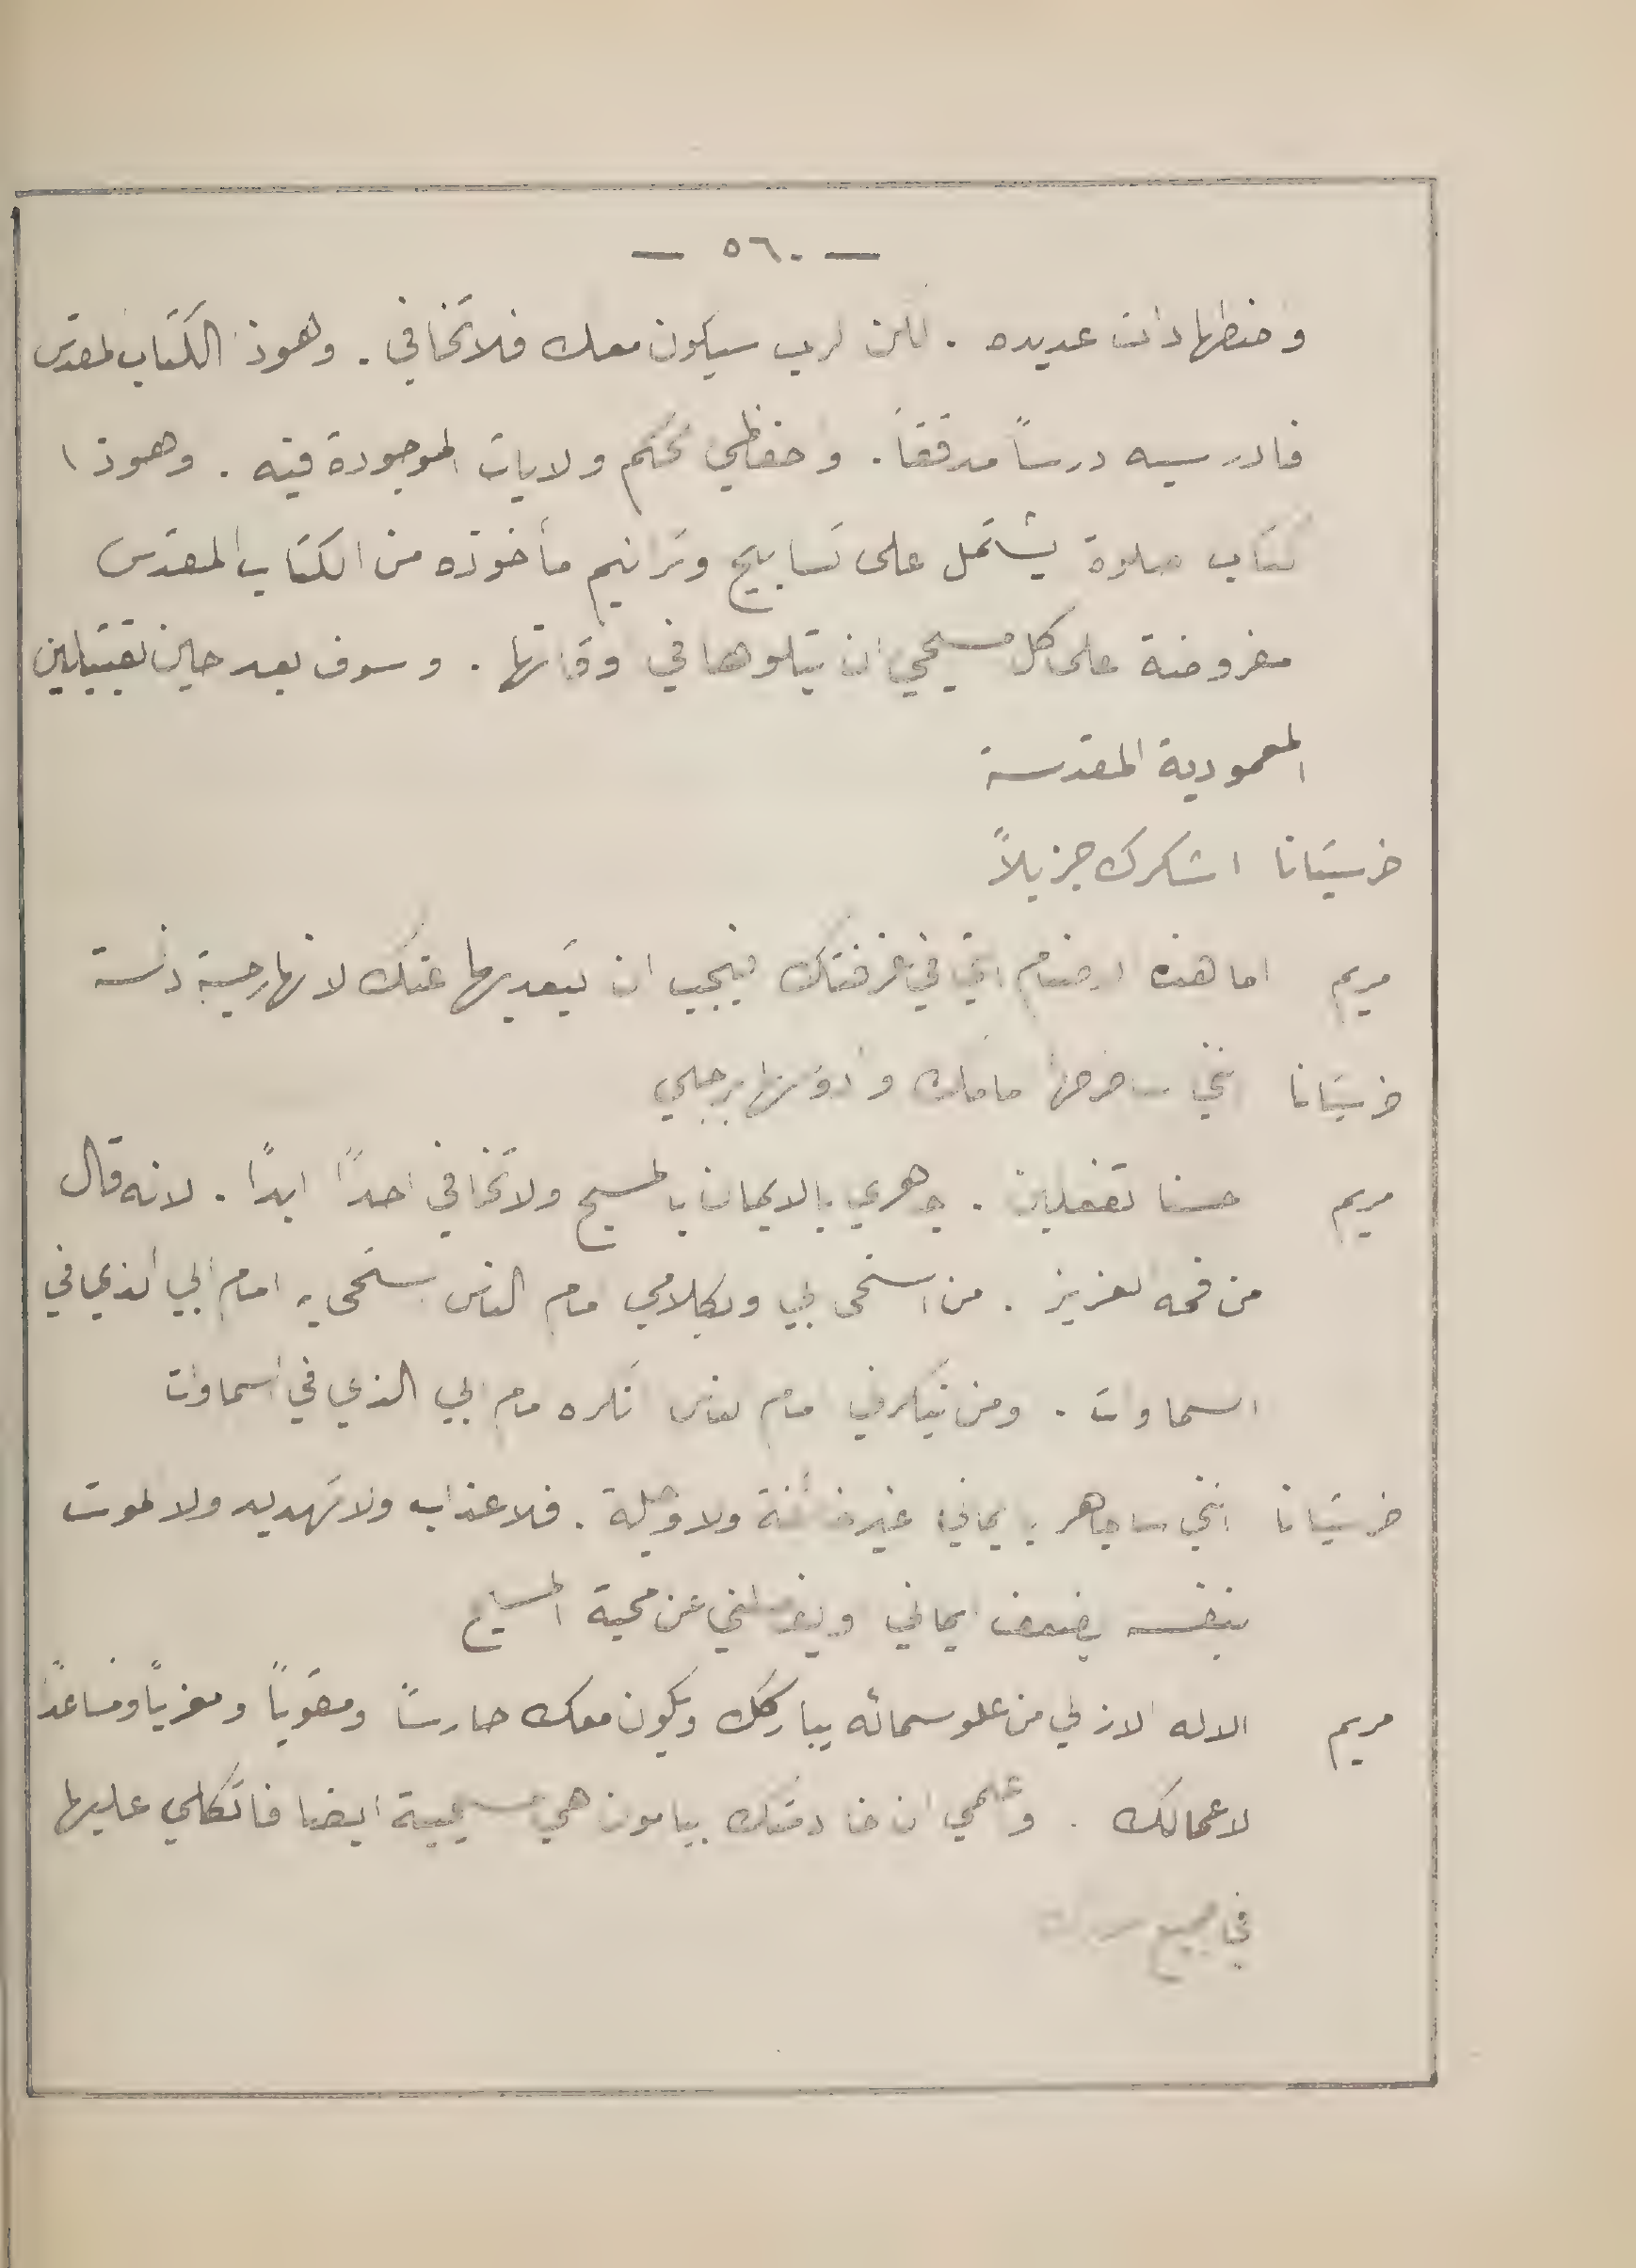 — ٥٦٠ —
واضطهادات عديده . لكن الرب سيكون معك فلا تخافي . وهوذا الكتاب المقدس
فادرسيه درساً مدققاً . واحفظي الحكم والايات الموجودة فيه . وهوذا
كتاب صلوة يشتمل على تسابيح وترانيم مأخوذه من الكتاب المقدس
مفروضة على كل مسيحي ان يتلوها في اوقاتها . وسوف بعد حين تقتبلين
المعمودية المقدسة
خرستيانا اشكرك جزيلاً
مريم اما هذه الاصنام التي في غرفتك فيجب ان تبعديها عنك لانها رجسة دنسة
خرستيانا انني سأطرحها امامك وادوسها برجلي
مريم حسنا تفعلين . جاهري بالايمان بالمسيح ولا تخافي احدًا ابدًا . لانه قال
من فمه العزيز . من استحى بي وبكلامي امام الناس استحي به امام ابي الذي في
السماوات . ومن ينكرني امام الناس انكره امام ابي الذي في السماوات
خرستيانا انني ساجاهر بايماني غير خائفة ولا وجلة . فلا عذاب ولا تهديد ولا الموت
بنفسه يضعف ايماني ويفصلني عن محبة المسيح
مريم الاله الازلي من علو سمائه يباركك ويكون معك حارساً ومقوياً ومعزياً ومساعداً
لاعمالك . واعلمي ان خادمتك بيامون هي مسيحية ايضا فاتكلي عليها
في جميع